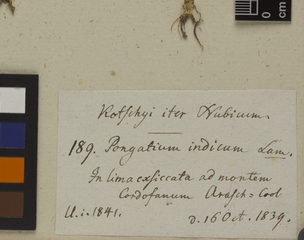 0
cm
Kotschyi iter Nubicum.
189. Pongatium indicum Lam.
In limo exsiccata ad montem
Cordofanum Arasch=Cool
U. i. 1841. d. 16 Oct. 1839.